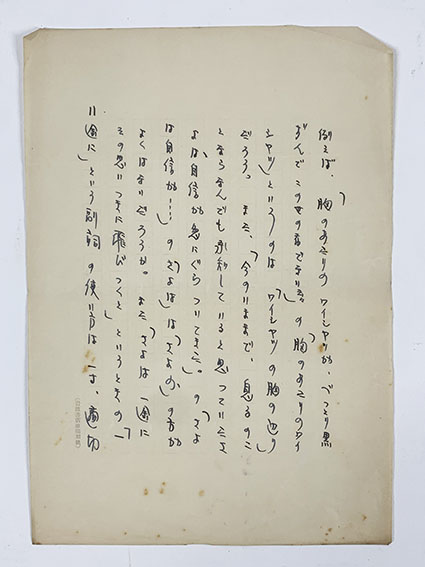 例えば、「胸のあたりのワイシヤツが、べつとり黒
ずんで この世の色でない。」の「胸のあたりのワイ
シヤツ」というのは「ワイシヤツの胸の辺り」
だろう。また、「今のいままで、息子のこ
となら なんでも承知していると思つていたさ
よは自信が急にぐらついてきた。」の「さよ
は自信が…」の「さよは」は「さよの」の方が
よくはないだろうか。また「さよは一途に
その思いつきに飛びつくと」というときの「一
途に」という副詞の使い方は一寸、適切